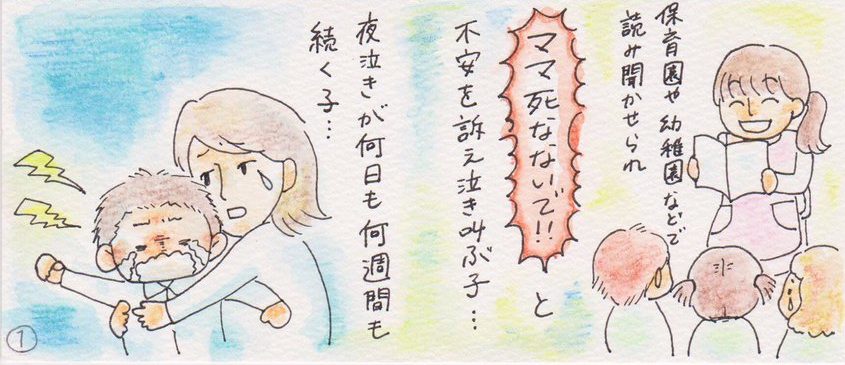 保育園や幼稚園などで
読み聞かせられ
ママ死なないで!!
と
不安を訴え泣き叫ぶ子…
夜泣きが何日も何週間も
続く子…
1